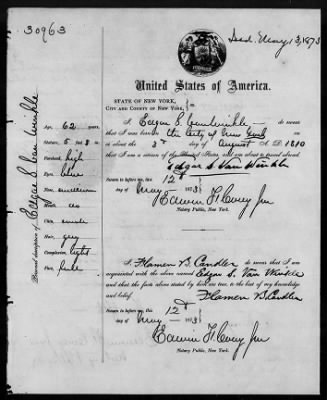 30963
Issd. May 13, 1873
United States of America.
STATE OF NEW YORK,
CITY AND COUNTY OF NEW YORK,
I Edgar S. Van Winkle do swear
that I was born in the City of New York
on or about the 3d day of August A.D. 1810
that I am a citizen of the United States, and am about to travel abroad.
Edgar S. Van Winkle
Sworn to before me, this 12th
day of May 1873
Edwin F. Corey Jr
Notary Public, New York.
I, Flamen B. Candler do swear that I am
acquainted with the above named Edgar S. Van Winkle
and that the facts above stated by him are true, to the best of my knowledge
and belief.
Flamen B. Candler
Sworn to before me, this 12th
day of May 1873
Edwin F. Corey Jr
Notary Public, New York.
Personal description of Edgar S. Van Winkle
Age, 62 years
Stature, 5 feet
Forehead, high
Eyes, blue
Nose,
Mouth,
Chin,
Hair, grey
Complexion, light
Face, full